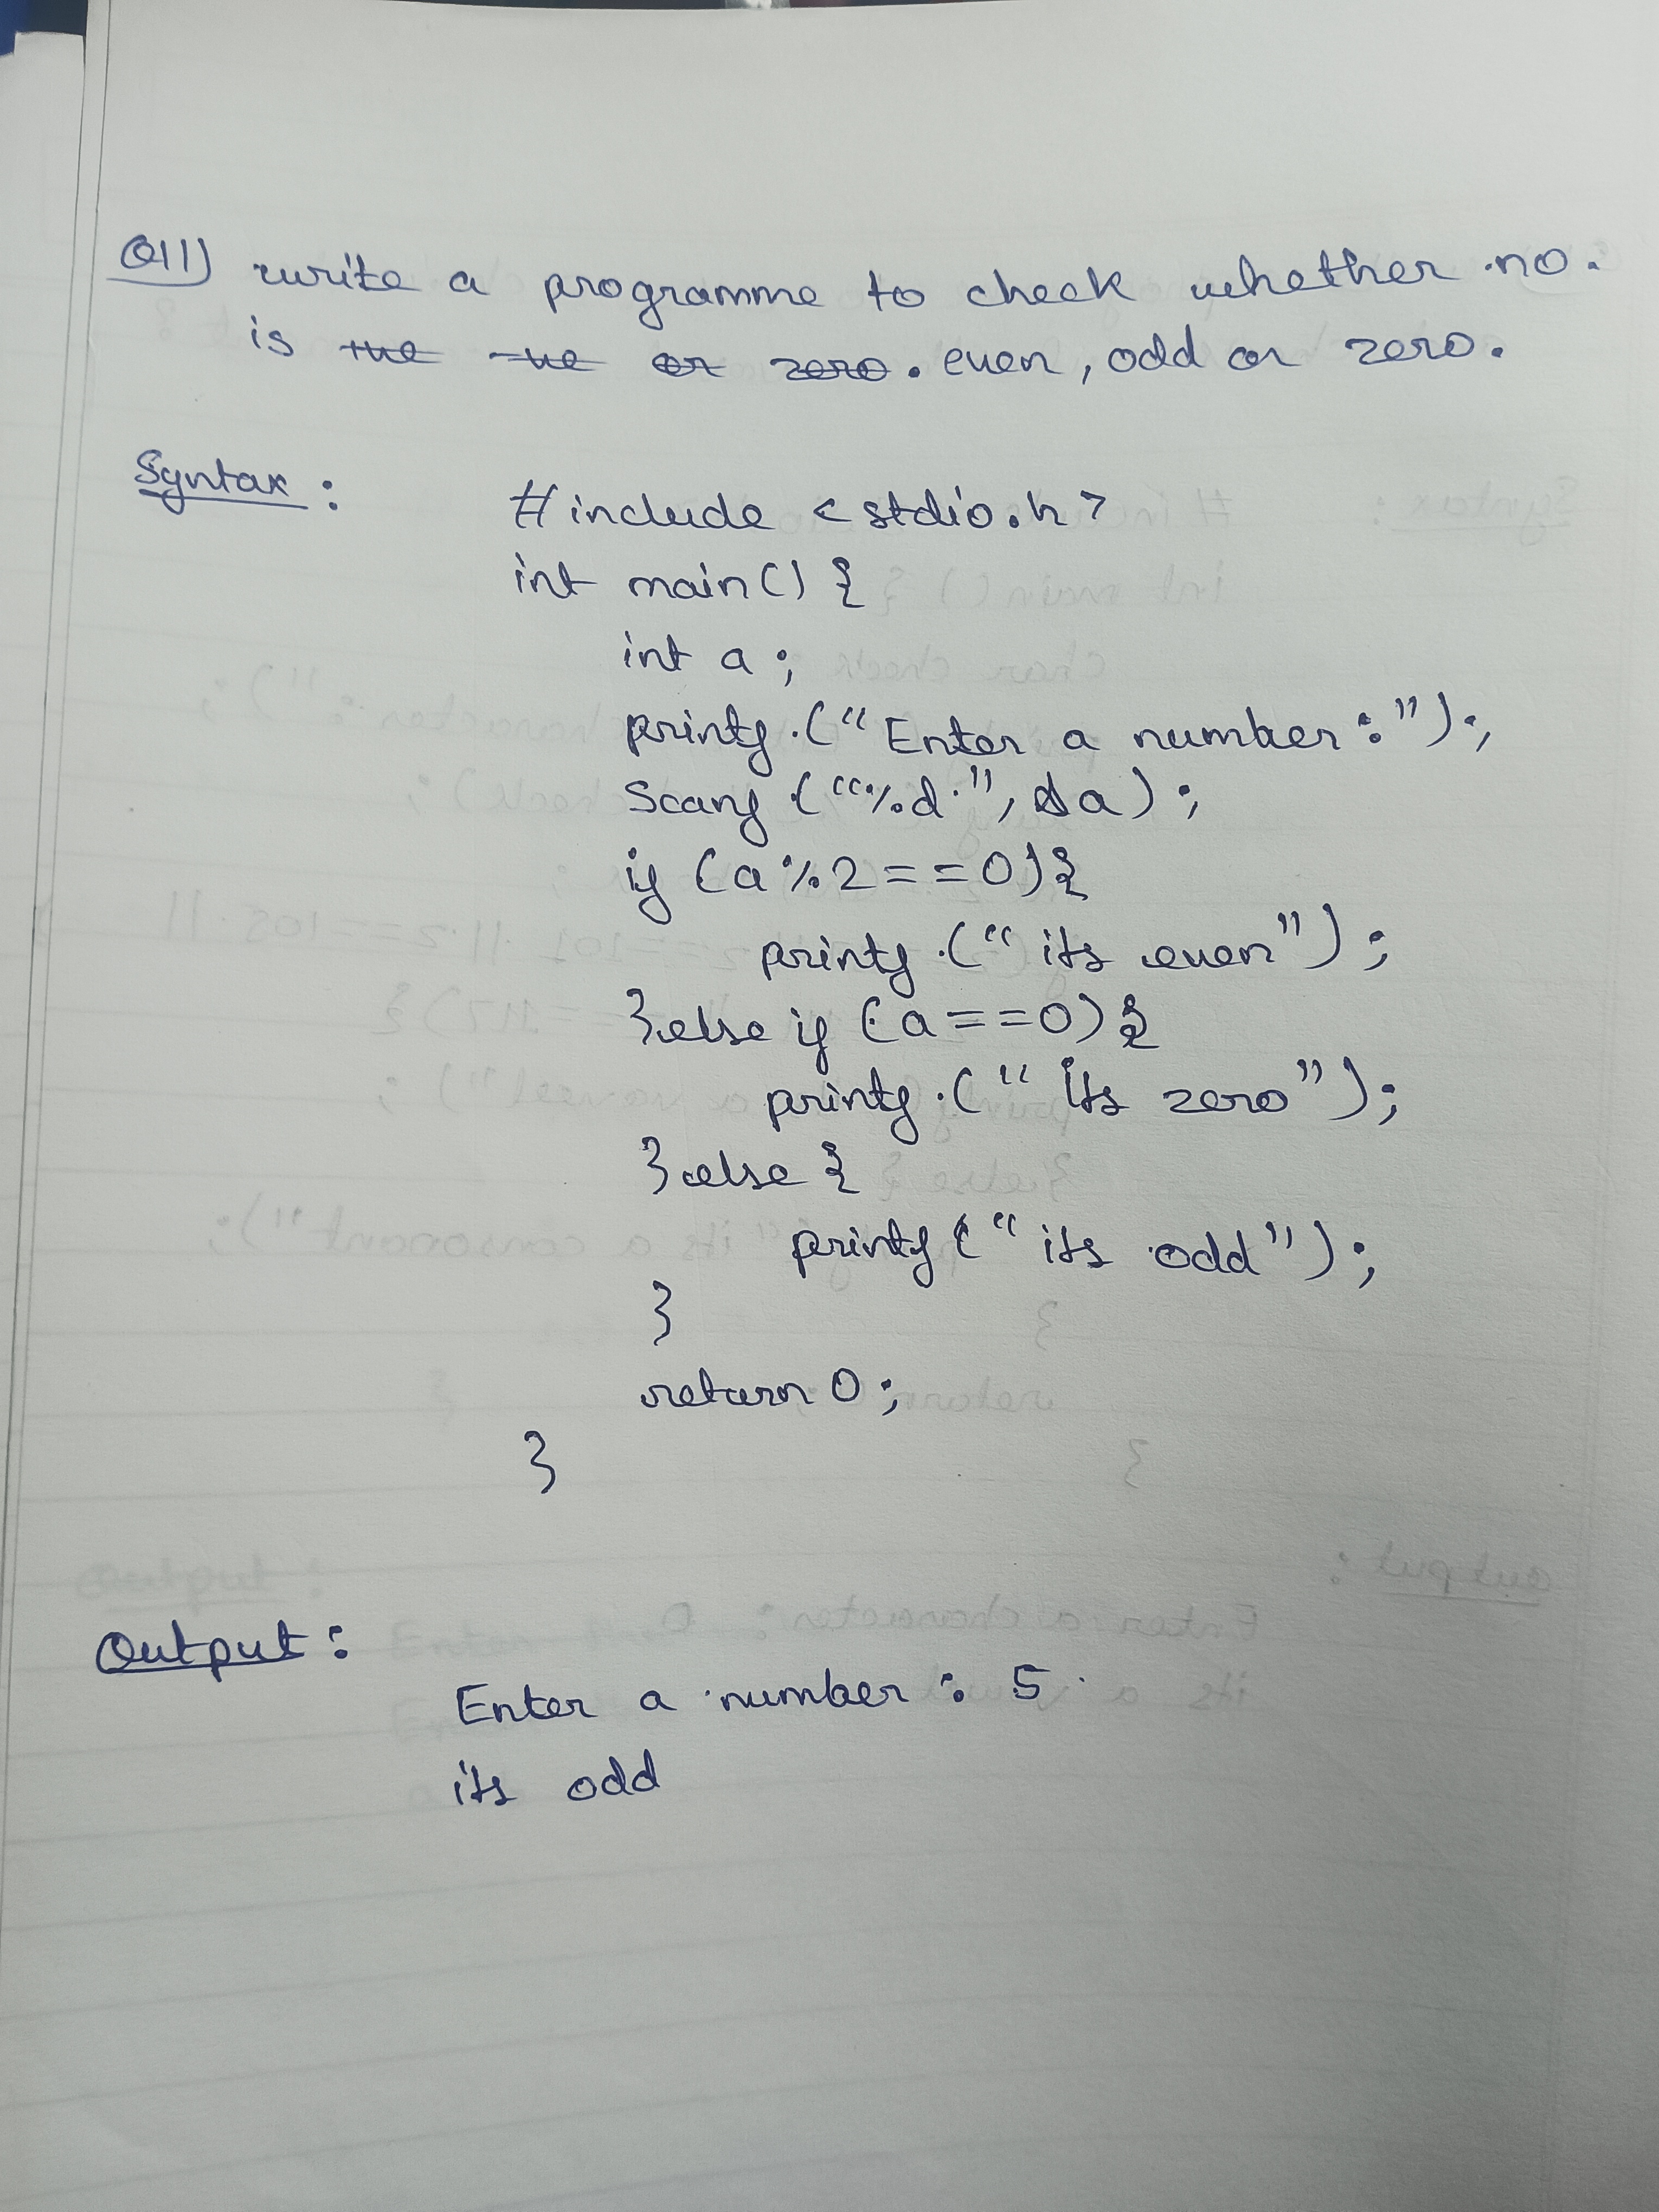 Q11) write a programme to check whether no.
is +ve -ve or zero. even, odd or zero.
Syntax :
#include <stdio.h>
int main() {
int a ;
printf ("Enter a number :");
Scanf ("%d", &a) ;
if (a%2==0){
printf ("its even") ;
}else if (a==0){
printf ("Its zero");
}else {
printf ("its odd");
}
return 0;
}
Output :
Enter a number : 5
its odd